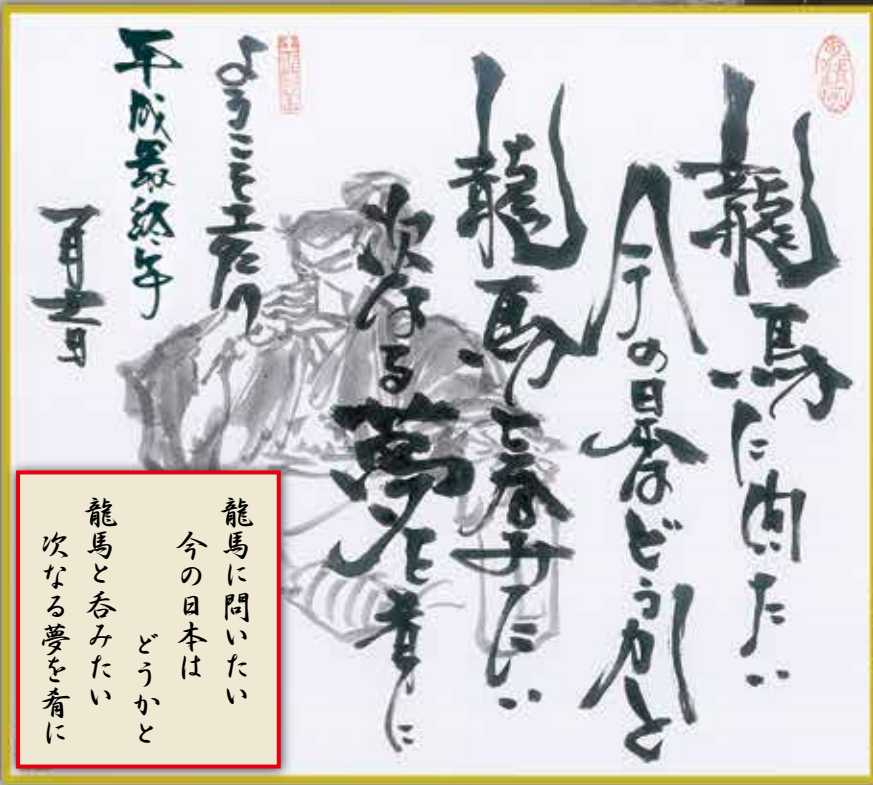 龍馬に問いたい
今の日本はどうかと
龍馬と呑みたい
次なる夢を肴に
ようこそ
平成最終年
龍馬に問いたい
今の日本は
どうかと
龍馬と呑みたい
次なる夢を肴に